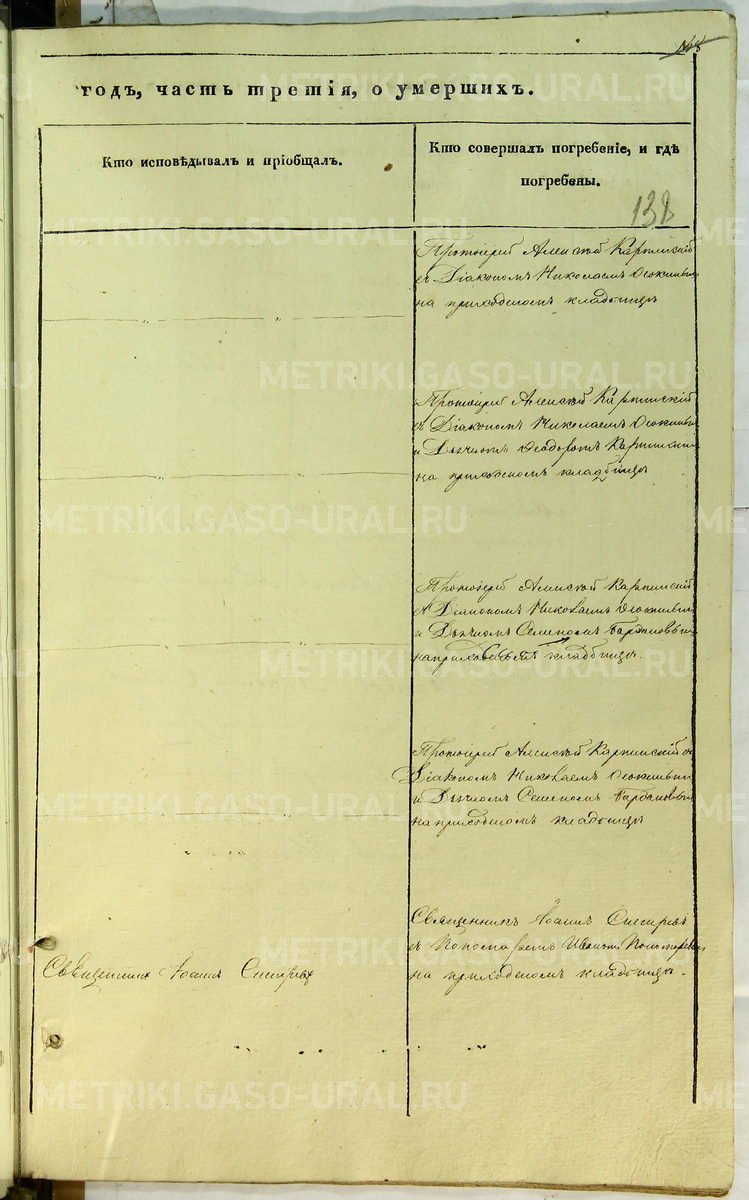 годъ, часть третія, о умершихъ.
Кто исповѣдывалъ и пріобщалъ.
Кто совершалъ погребеніе, и гдѣ
погребены.
138
Протоіерей Алексѣй Карпинскій
съ Діакономъ Николаемъ
на приходскомъ кладбищѣ
Протоіерей Алексѣй Карпинскій
съ Діакономъ Николаемъ
и Дьячкомъ Ѳеодоромъ
на приходскомъ кладбищѣ
Протоіерей Алексѣй Карпинскій
съ Діакономъ Николаемъ
и Дьячкомъ Семеномъ
на приходскомъ кладбищѣ.
Протоіерей Алексѣй Карпинскій съ
Діакономъ Николаемъ
и Дьячкомъ Семеномъ
на приходскомъ кладбищѣ
Священникъ Іоаннъ
съ Пономаремъ
Священникъ Іоаннъ
на приходскомъ кладбищѣ.
METRIKI.GASO-URAL.RU